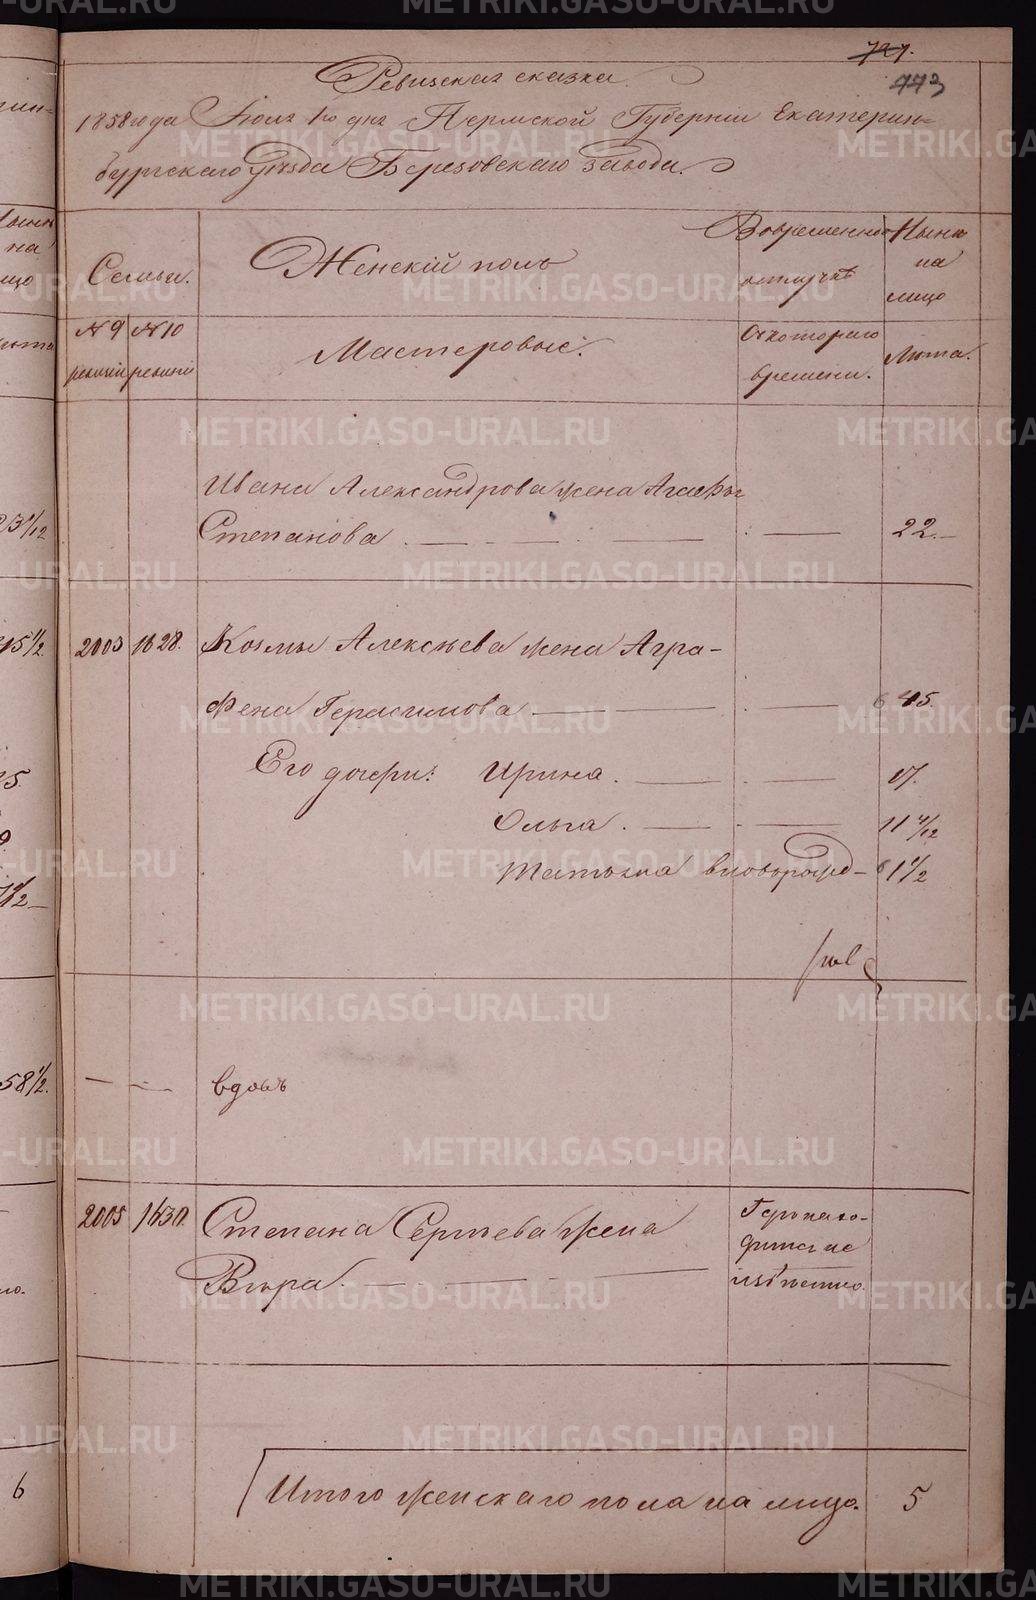 727.
773
Ревизская сказка
1858 года Июля 1го дня Пермской Губернии Екатерин=
бургскаго Уезда Березовскаго завода.
Семьи.
Женскій полъ
Вовременной
отлучкѣ
Нынѣ
на
лицо
№ 9
ревизіи
№ 10
ревизіи
Мастеровые.
Съкотораго
времени.
Лѣта.
Ивана Александрова жена Агафья
Степанова . — — — — . — 22. —
2003 1628. Козмы Алексѣева жена Агра-
фена Герасимова — — . — 45.
Его дочери: Ирина . — — . — 17.
Ольга . — . — 11 4/12
Татьяна вновьрожд- 1 1/2
— — вдовъ
2005 1630. Степана Сергѣева жена
Вѣра. — — —
не
извѣстно.
Итого женскаго пола на лицо. 5
23 1/12
15 1/2.
58 1/2.
6
METRIKI.GASO-URAL.RU